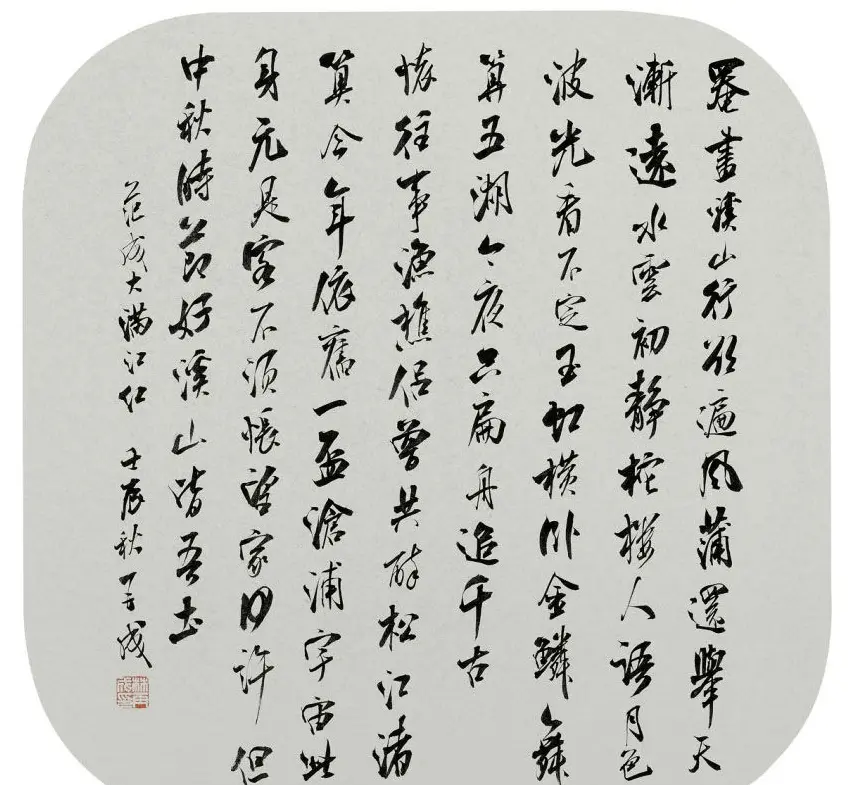 罨畫溪山行欲遍風蒲還舉天
漸遠水雲初靜柁樓人語月色
波光看不定玉虹橫卧金鱗舞
算五湖今夜只扁舟追千古
懷往事漁樵侶曾共醉松江渚
算今年依舊一盃滄浦宇宙此
身元是客不須悵望家何許但
中秋時節好溪山皆吾土
范成大滿江紅 壬辰秋 成